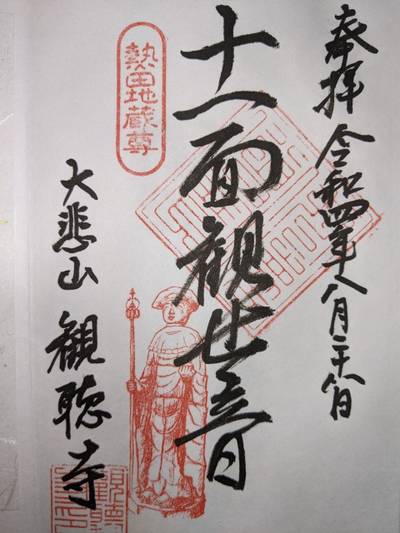 奉拝 令和四年八月二十八日
十一面観世音
熱田地蔵尊
大悲山 観聴寺